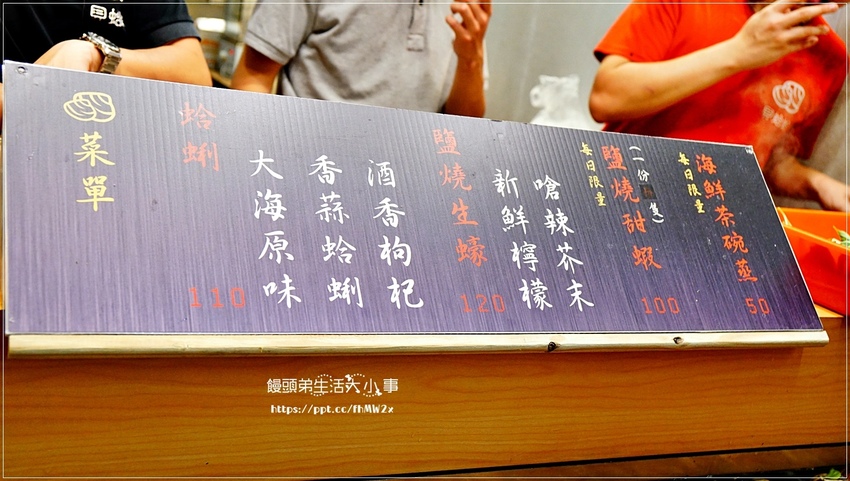 菜單
蛤蜊
110
大海原味
香蒜蛤蜊
酒香枸杞
鹽燒生蠔
120
新鮮檸檬
嗆辣芥末
每日限量
鹽燒甜蝦
(一份 隻)
100
每日限量
海鮮茶碗蒸
50
饅頭弟生活大小事
https://ppt.cc/fhMW2x